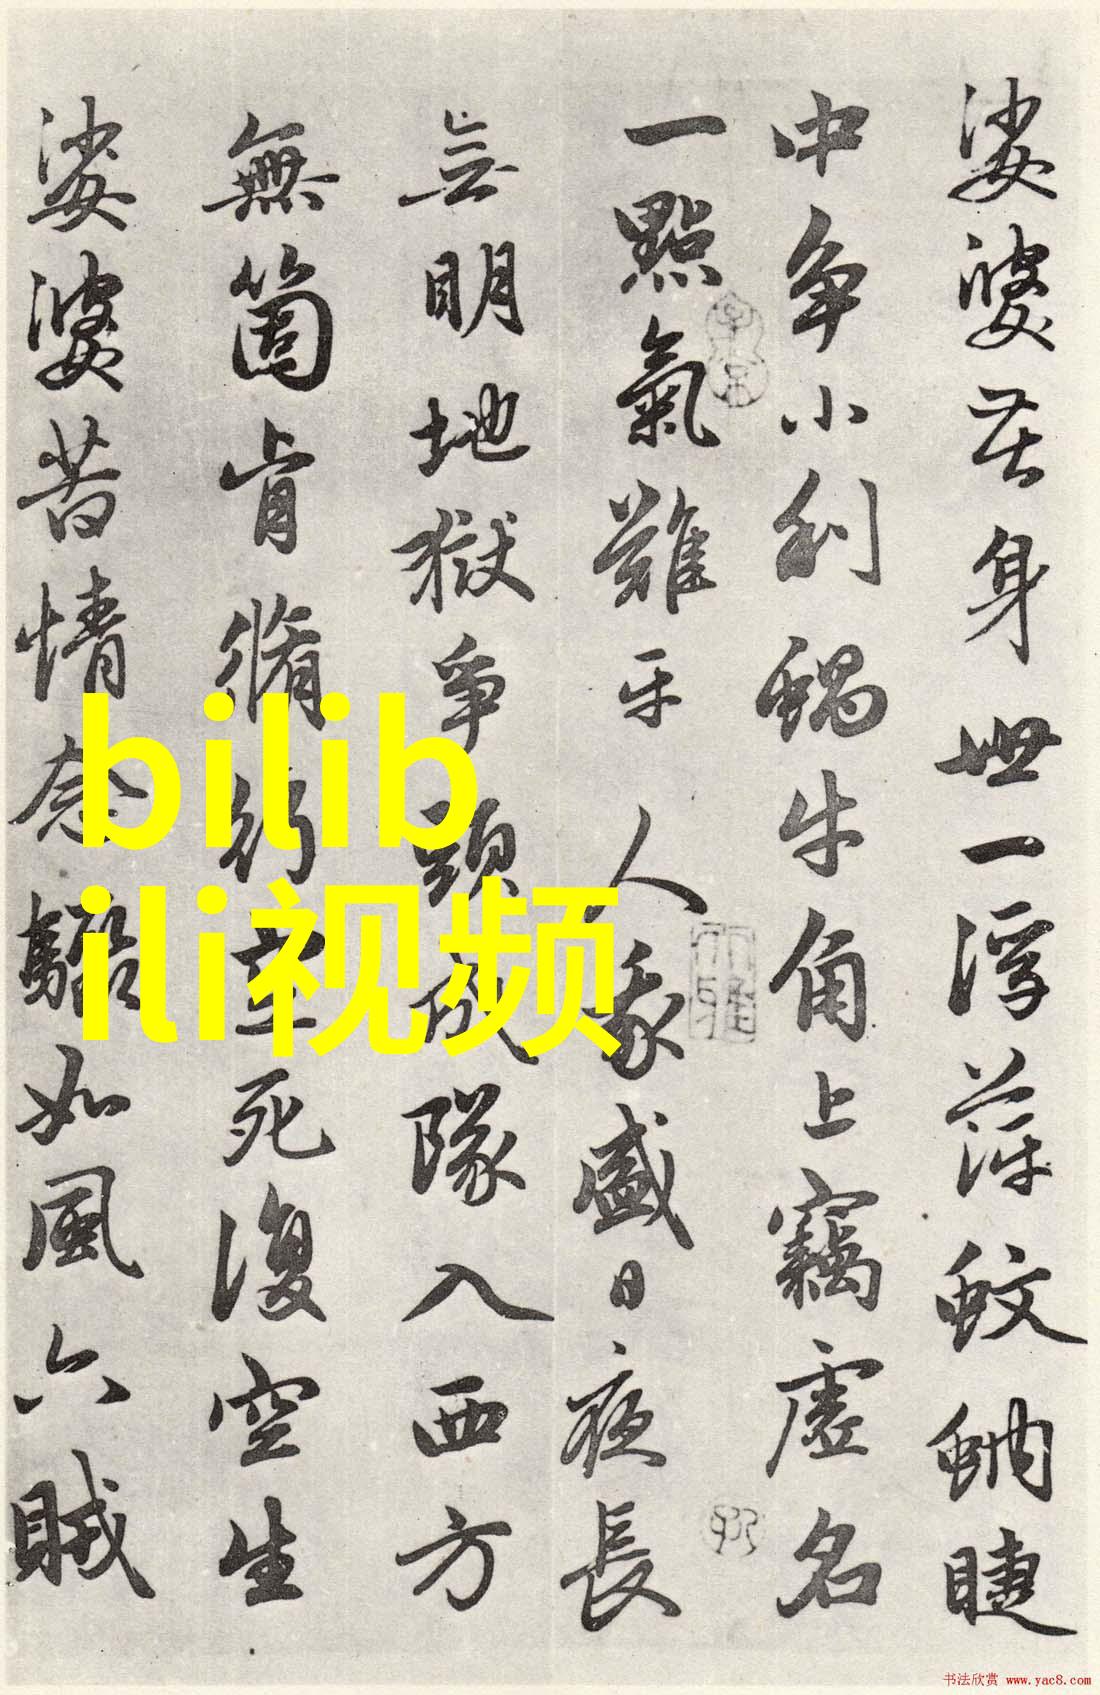 娑婆苦身世一浮萍蚊蚋睫
中争小利蝸牛角上竊虛名
一點氣難平人我盛日夜長
無明地獄爭頭成隊入西方
無箇肯脩行空死復空生
娑婆苦情念驟如風六賊
bilib
ili视频
书法欣赏 www.yac8.com